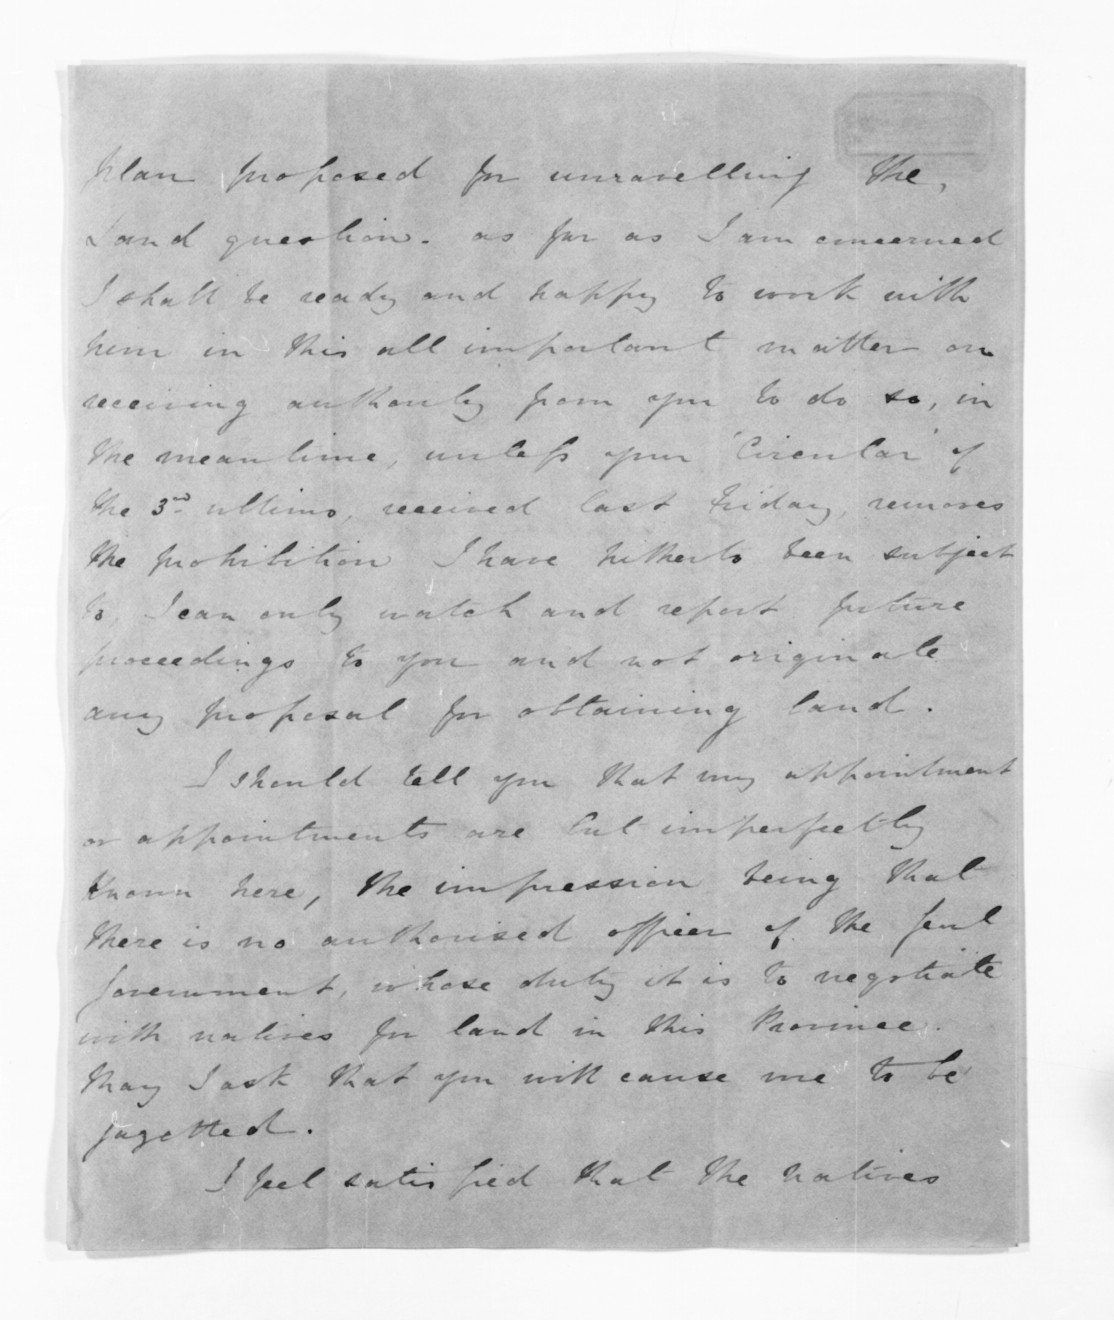 plan proposed for unravelling the,
Land question. as far as I am concerned
I shall be ready and happy to work with
him in this all important matter on
receiving authority from you to do so, in
the meantime, unless your 'Circular' of
the 3rd ultimo, received last Friday, removes
the prohibition I have hitherto been subject
to, I can only watch and report future
proceedings to you and not originate
any proposal for obtaining land.
I should tell you that my appointment
or appointments are but imperfectly
known here, the impression being that
there is no authorised officer of the Genl
Government, whose duty it is to negotiate
with natives for land in this Province.
May I ask that you will cause me to be
gazetted.
I feel satisfied that the natives